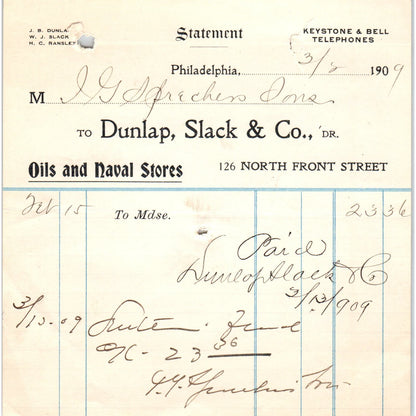 J. B. DUNLA
W. J. SLACK
H. C. RANSLEY
Statement
KEYSTONE & BELL
TELEPHONES
Philadelphia, 3/8 1909
M J G Sprechers Sons
TO Dunlap, Slack & Co., DR.
Oils and Naval Stores 126 NORTH FRONT STREET
Feb 15 To Mdse. 23 36
Paid
Dunlap Slack & Co
3/13/1909
3/13-09
23 36